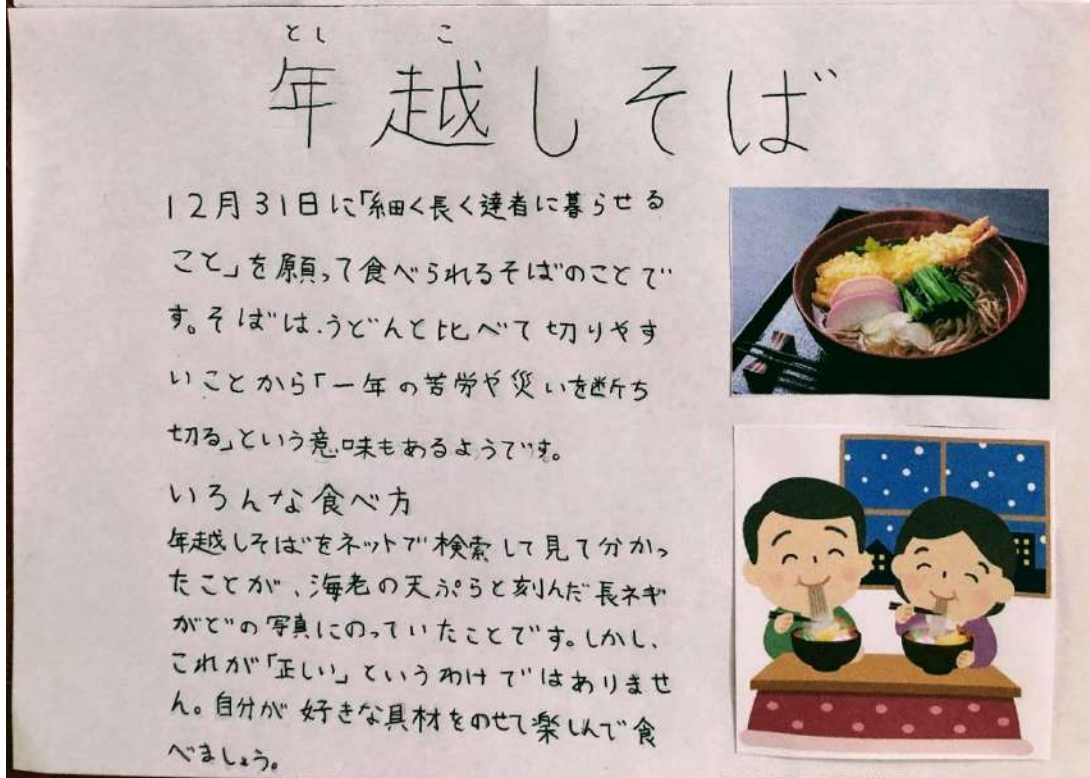 とし こ
年越しそば
12月31日に「細く長く達者に暮らせる
こと」を願って食べられるそばのことで
す。そばは、うどんと比べて切りやす
いことから「一年の苦労や災いを断ち
切る」という意味もあるようです。
いろんな食べ方
年越しそばをネットで検索して見て分かっ
たことが、海老の天ぷらと刻んだ長ネギ
がどの写真にのっていたことです。しかし、
これが「正しい」というわけではありませ
ん。自分が好きな具材をのせて楽しんで食
べましょう。